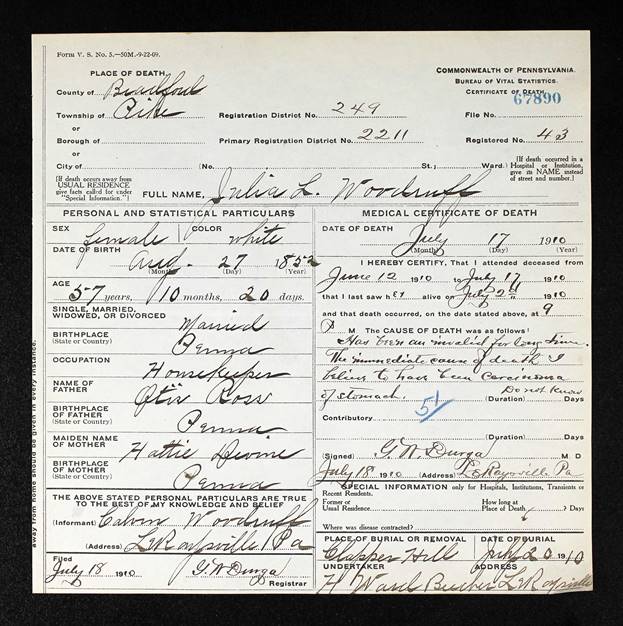 Form V. S. No. 5.—50M.-9-22-09.
PLACE OF DEATH.
County of Bradford
Township of Pike
or
Borough of
or
City of
COMMONWEALTH OF PENNSYLVANIA.
BUREAU OF VITAL STATISTICS.
CERTIFICATE OF DEATH.
67890
Registration District No. 249
File No.
Primary Registration District No. 2211
Registered No. 43
(No. St.; Ward.)
[If death occurred in a Hospital or Institution, give its NAME instead of street and number.]
[If death occurs away from USUAL RESIDENCE give facts called for under "Special Information."]
FULL NAME, Julia L. Woodruff
PERSONAL AND STATISTICAL PARTICULARS
SEX female COLOR white
DATE OF BIRTH Aug. 27 1852
(Month) (Day) (Year)
AGE 57 years, 10 months, 20 days.
SINGLE, MARRIED, WIDOWED, OR DIVORCED Married
BIRTHPLACE (State or Country) Penna
OCCUPATION Housekeeper
NAME OF FATHER Otis Ross
BIRTHPLACE OF FATHER (State or Country) Penna
MAIDEN NAME OF MOTHER Hattie Devine
BIRTHPLACE OF MOTHER (State or Country) Penna
THE ABOVE STATED PERSONAL PARTICULARS ARE TRUE
TO THE BEST OF MY KNOWLEDGE AND BELIEF
(Informant) Calvin Woodruff
(Address) LeRaysville Pa
Filed
July 18 1910 G. W Durga
Registrar
MEDICAL CERTIFICATE OF DEATH
DATE OF DEATH
July 17 1910
(Month) (Day) (Year)
I HEREBY CERTIFY, That I attended deceased
from June 12 1910 to July 17 1910
that I last saw her alive on July 2nd 1910
and that death occurred, on the date stated above, at 9
P M The CAUSE OF DEATH was as follows:
Has been an invalid for long time.
The immediate cause of death I
believe to have been Carcinoma
of stomach. Do not know
(Duration) Days
51
Contributory
(Duration) Days
(Signed) G. W. Durga M D
July 18 1910 (Address) LeRaysville Pa
SPECIAL INFORMATION only for Hospitals, Institutions, Transients or Recent Residents.
Former or Usual Residence
How long at Place of Death ? Days
Where was disease contracted?
PLACE OF BURIAL OR REMOVAL DATE OF BURIAL
Clapper Hill July 20 1910
UNDERTAKER ADDRESS
H Ward LeRaysville
away from home should be given in every instance.